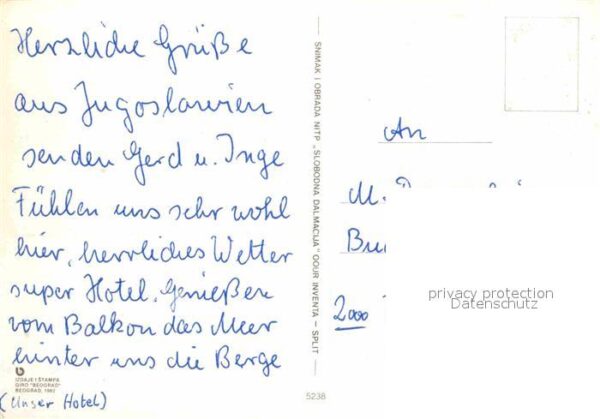 Herzliche Grüße
aus Jugoslawien
senden Gerd u. Inge
Fühlen uns sehr wohl
hier, herrliches Wetter
super Hotel. Genießen
vom Balkon das Meer
hinter uns die Berge
(Unser Hotel)
IZDAJE I ŠTAMPA
GIRO "BEOGRAD"
BEOGRAD, 1982
SNIMAK I OBRADA NITP „SLOBODNA DALMACIJA" OOUR INVENTA – SPLIT
5238
An
M.
2000
privacy protection
Datenschutz